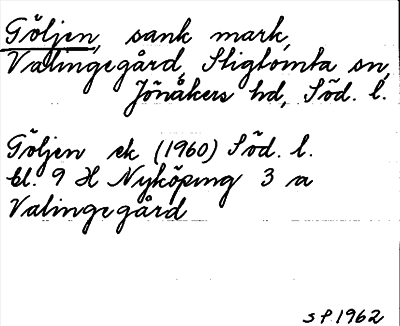 Göljen, sank mark,
Valingegård, Stigtomta sn,
Jönåkers hd, Söd. l.
Göljen ek (1960) Söd. l.
bl. 9 H Nyköping 3 a
Valingegård
SP 1962